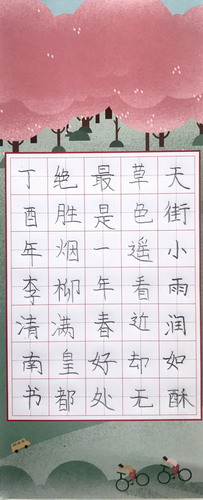 天街小雨润如酥
草色遥看近却无
最是一年春好处
绝胜烟柳满皇都
丁酉年李清南书